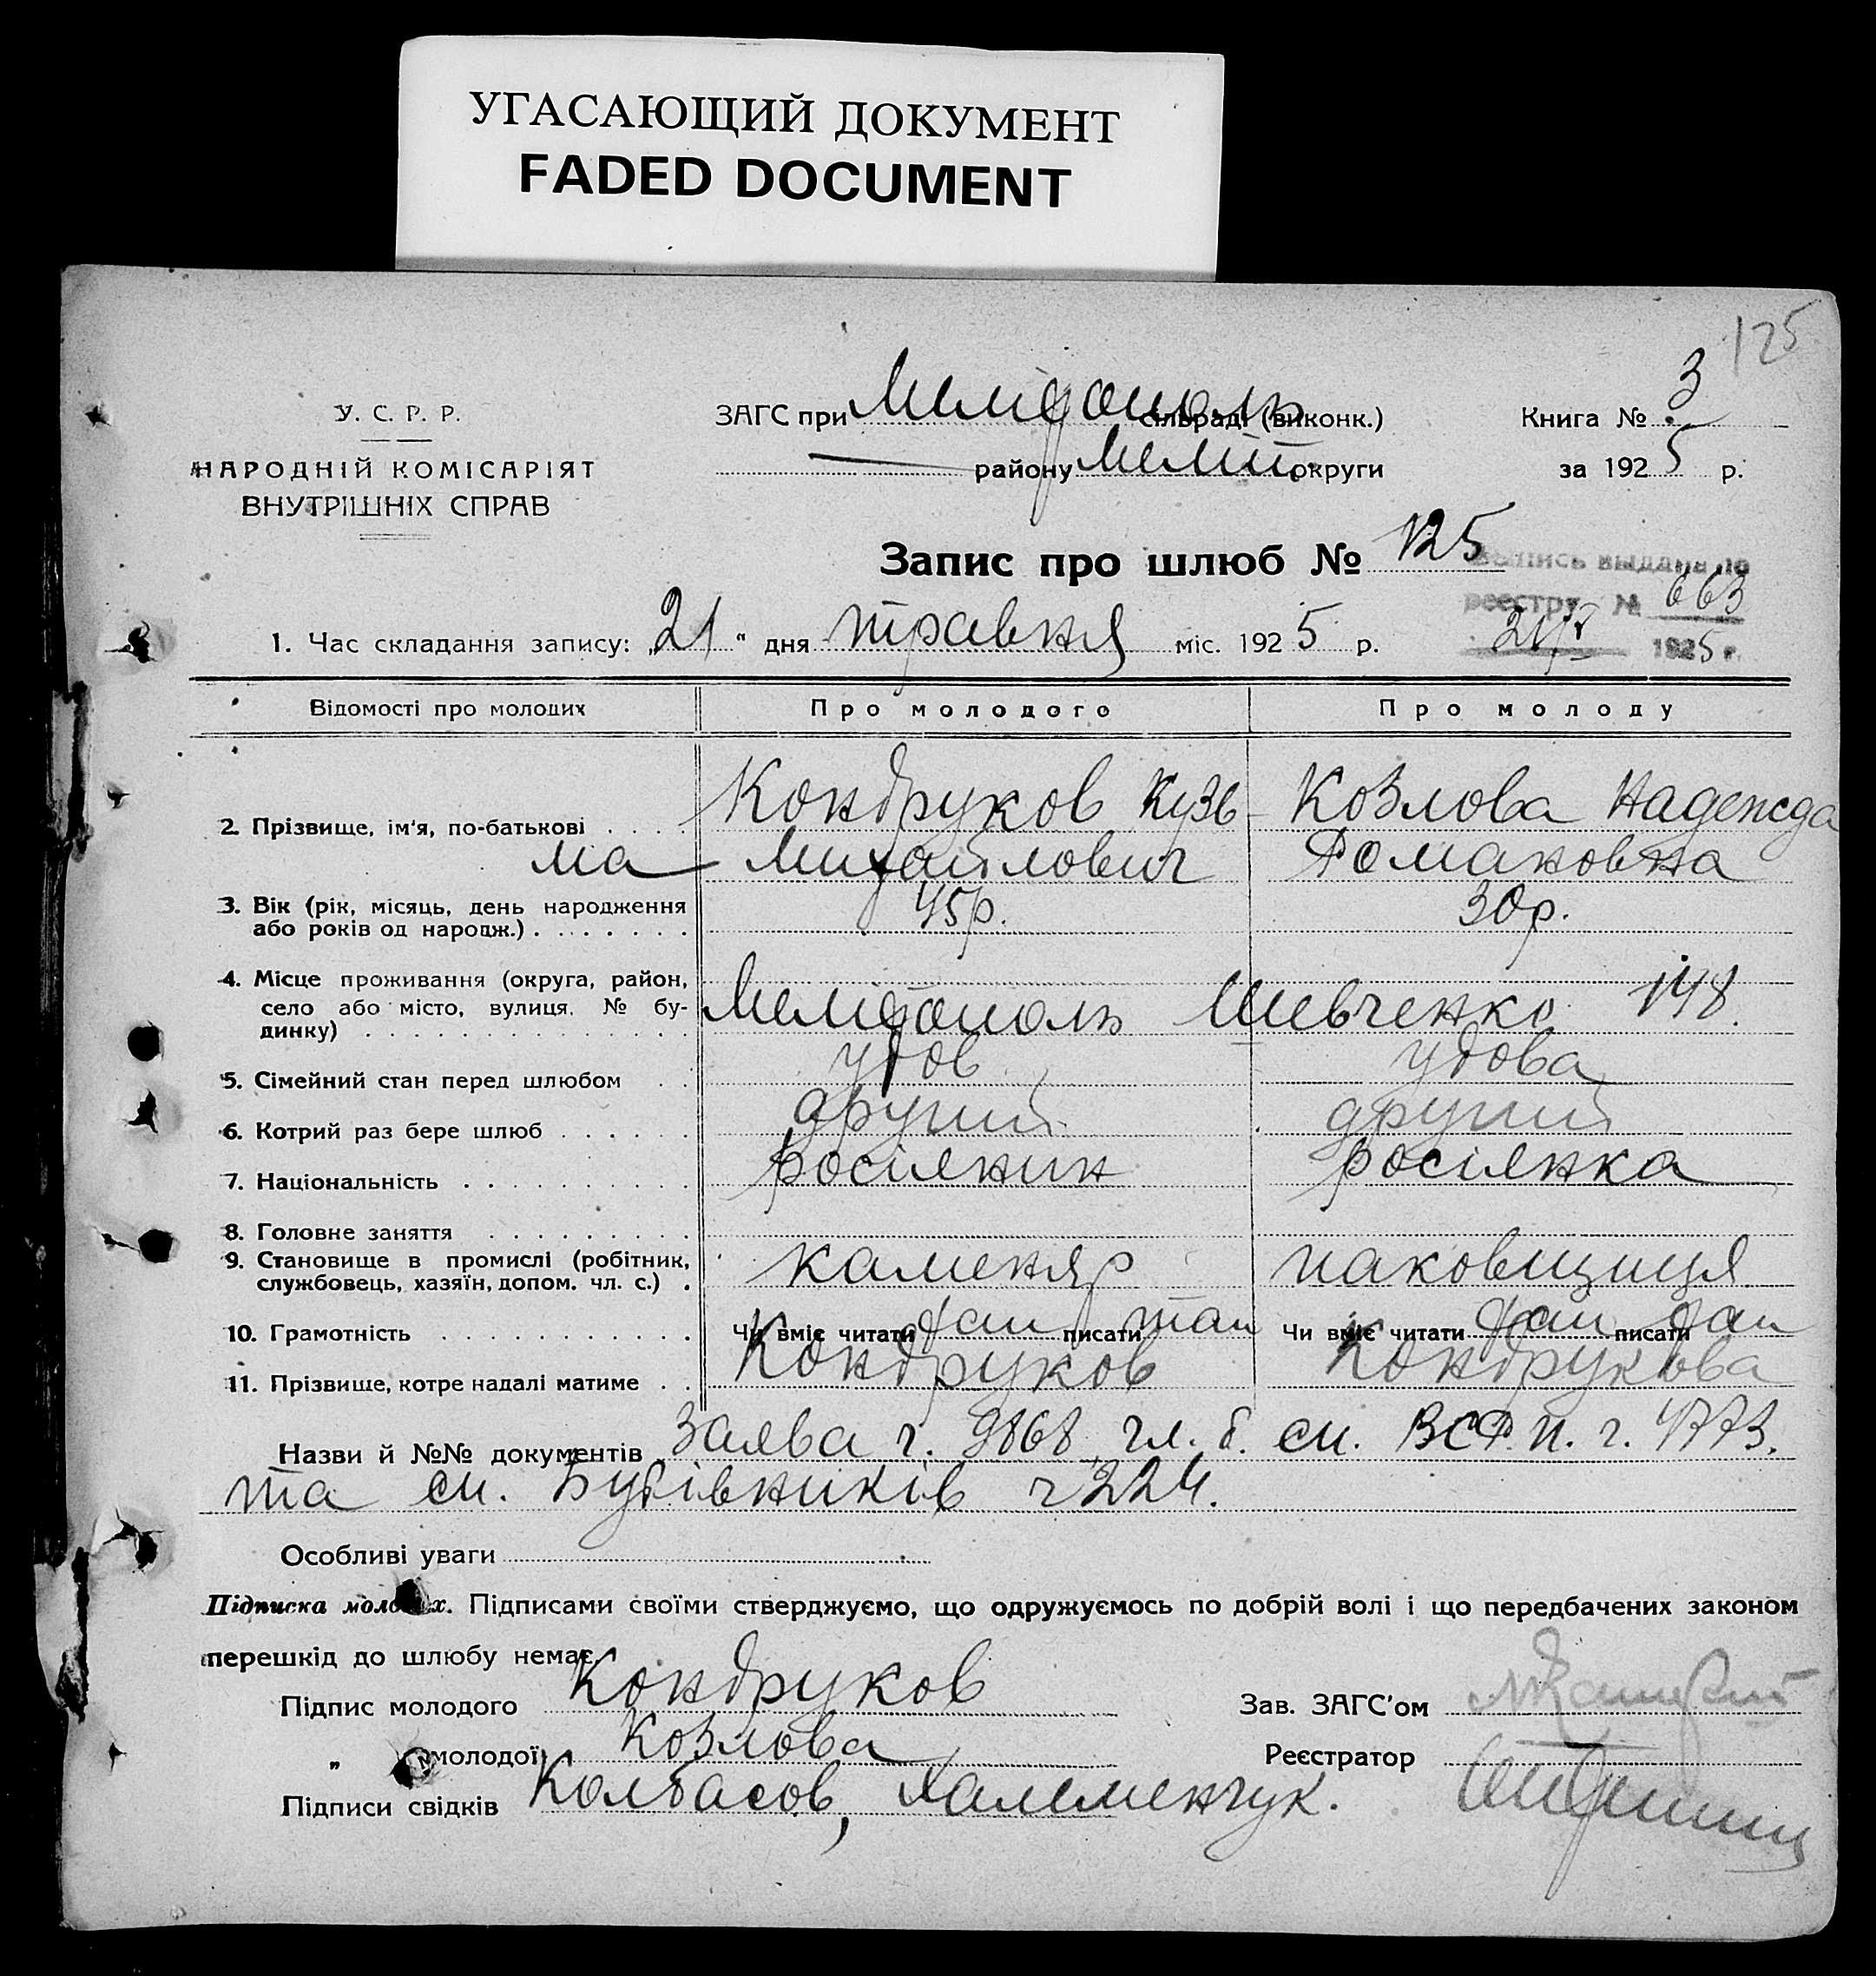 УГАСАЮЩИЙ ДОКУМЕНТ
FADED DOCUMENT
125
У. С. Р. Р.
НАРОДНІЙ КОМІСАРІЯТ
ВНУТРІШНІХ СПРАВ
ЗАГС при Мелітополь сільраді (виконк.)
— району Меліт. округи
Книга № 3
за 1925 р.
Запис про шлюб № 125
Выпись выдана по
реестру № 663
1925 г.
1. Час складання запису: „21“ дня травня міс. 1925 р.
Відомості про молодих Про молодого Про молоду
2. Прізвище, ім'я, по-батькові Кондруков Кузь- Козлова Надежда
ма Михайлович Романовна
3. Вік (рік, місяць, день народження
або років од народж.) 45р. 30р.
4. Місце проживання (округа, район,
село або місто, вулиця, № бу-
динку) Мелітополь Шевченко 148.
5. Сімейний стан перед шлюбом удов удова
6. Котрий раз бере шлюб другий другий
7. Національність росіянин росіянка
8. Головне заняття
9. Становище в промислі (робітник,
службовець, хазяїн, допом. чл. с.) каменяр паковщиця
10. Грамотність Чи вміє читати так писати так Чи вміє читати так писати так
11. Прізвище, котре надалі матиме Кондруков Кондрукова
Назви й №№ документів Заява ч. 9868, чл. б. сп. ВСФ.П. ч. 4773.
та сп. Будівників ч 224.
Особливі уваги
Підписка молодих. Підписами своїми стверджуємо, що одружуємось по добрій волі і що передбачених законом
перешкід до шлюбу немає.
Підпис молодого Кондруков Зав. ЗАГС'ом
„ молодої Козлова Реєстратор
Підписи свідків Колбасов, Халеменчук.